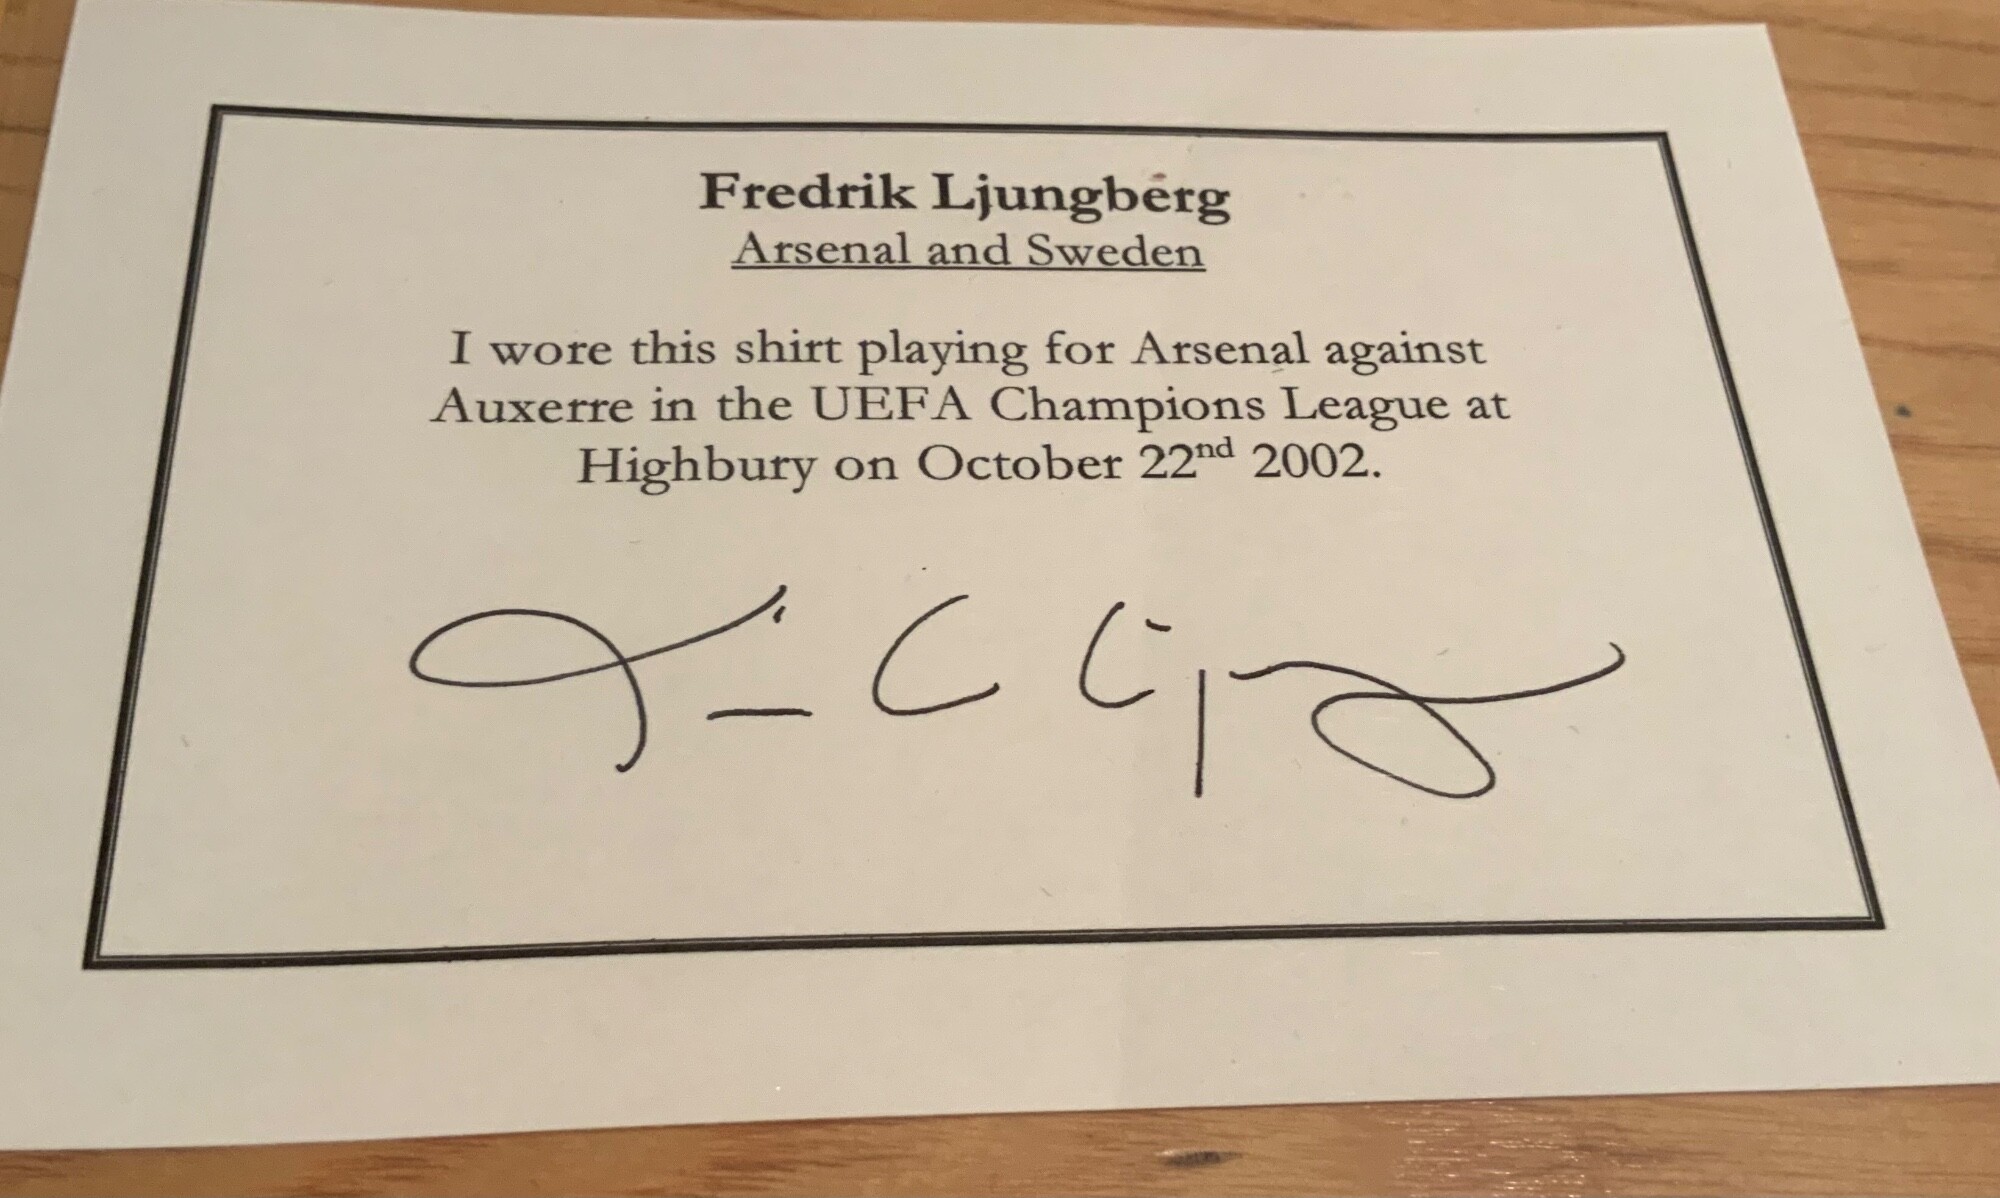 Fredrik Ljungberg
Arsenal and Sweden
I wore this shirt playing for Arsenal against
Auxerre in the UEFA Champions League at
Highbury on October 22nd 2002.